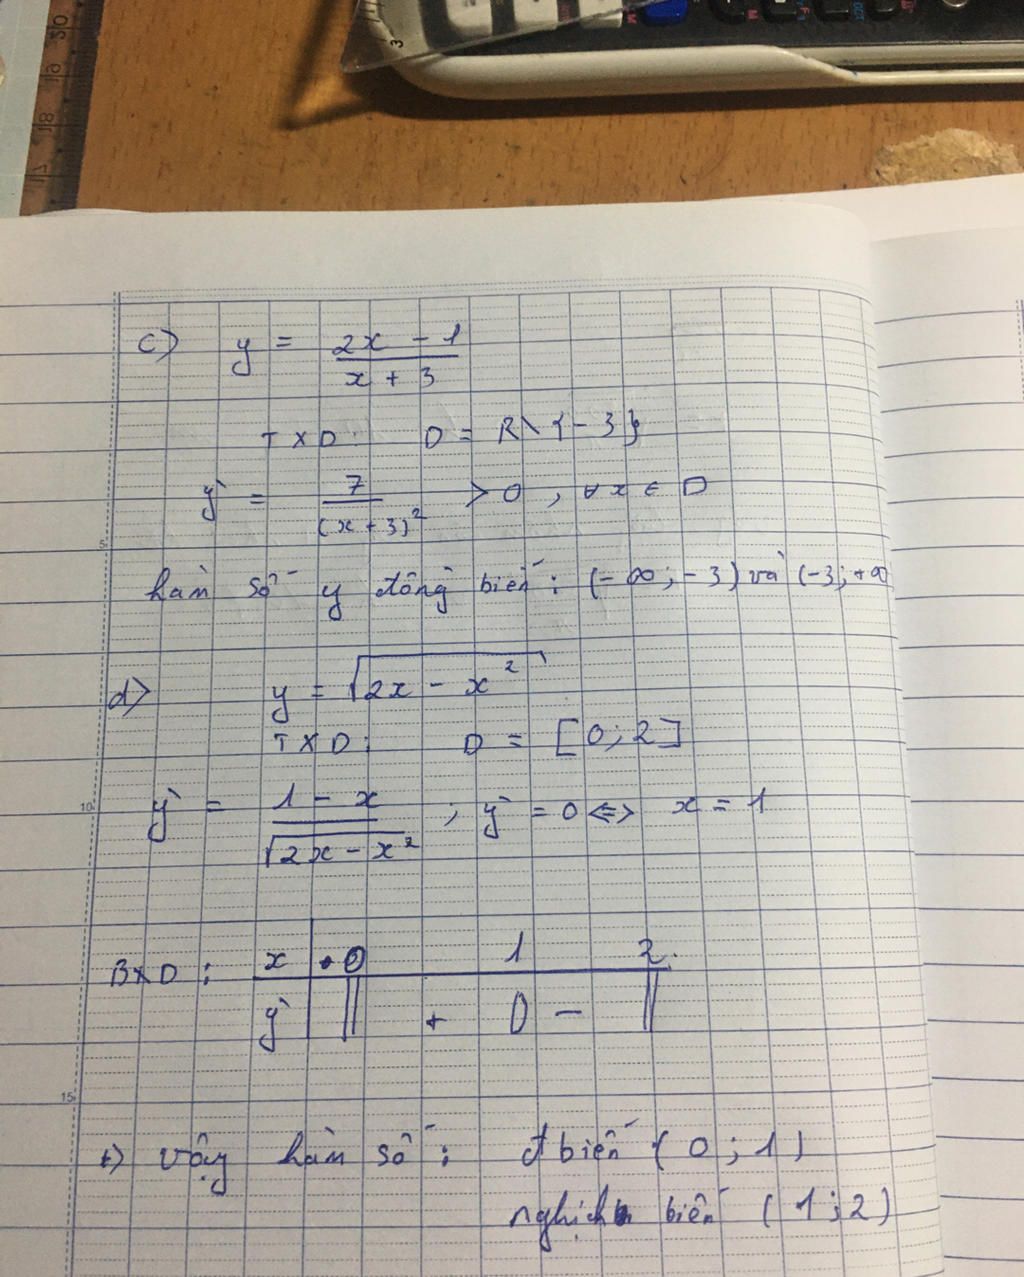 c) y = (2x - 1)/(x + 3)
TXD: D = R\{-3}
y' = 7/(x+3)² > 0, ∀x ∈ D
hàm số y đồng biến: (-∞; -3) và (-3; +∞
d) y = √(2x - x²)
TXD: D = [0; 2]
y' = (1 - x)/√(2x - x²); y' = 0 <=> x = 1
BXD: x 0 1 2
y' || + 0 - ||
vậy hàm số: đ biến (0; 1)
nghịch biến (1; 2)
5
10
15